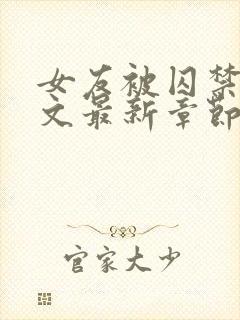 女友被囚禁
文最新章節
官家大少